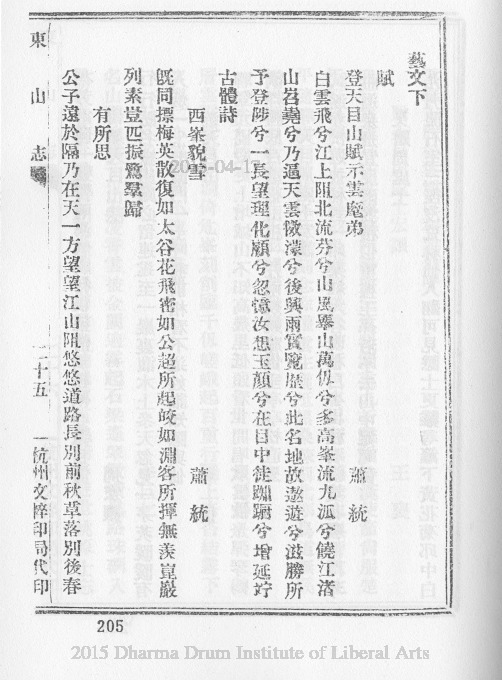 藝文下
賦
登天目山賦示雲麾弟 蕭統
白雲飛兮江上阻北流芬兮山風舉山萬仭兮多高峯流九泒兮饒江渚
山岧嶢兮乃逼天雲微濛兮後興雨實覽歷兮此名地故遨遊兮滋勝所
予登陟兮一長望理化顧兮忽憶汝想玉顏兮在目中徒踟躕兮增延竚
古體詩
西峯貌雪 蕭統
旣同摽梅英散復如太谷花飛密如公超所起皎如淵客所揮無羨崑巖
列素豈匹振鷺羣歸
有所思
公子遠於隔乃在天一方望望江山阻悠悠道路長別前秋草落別後春
東山志 二十五 杭州文粹印局代印
205
2015 Dharma Drum Institute of Liberal Arts